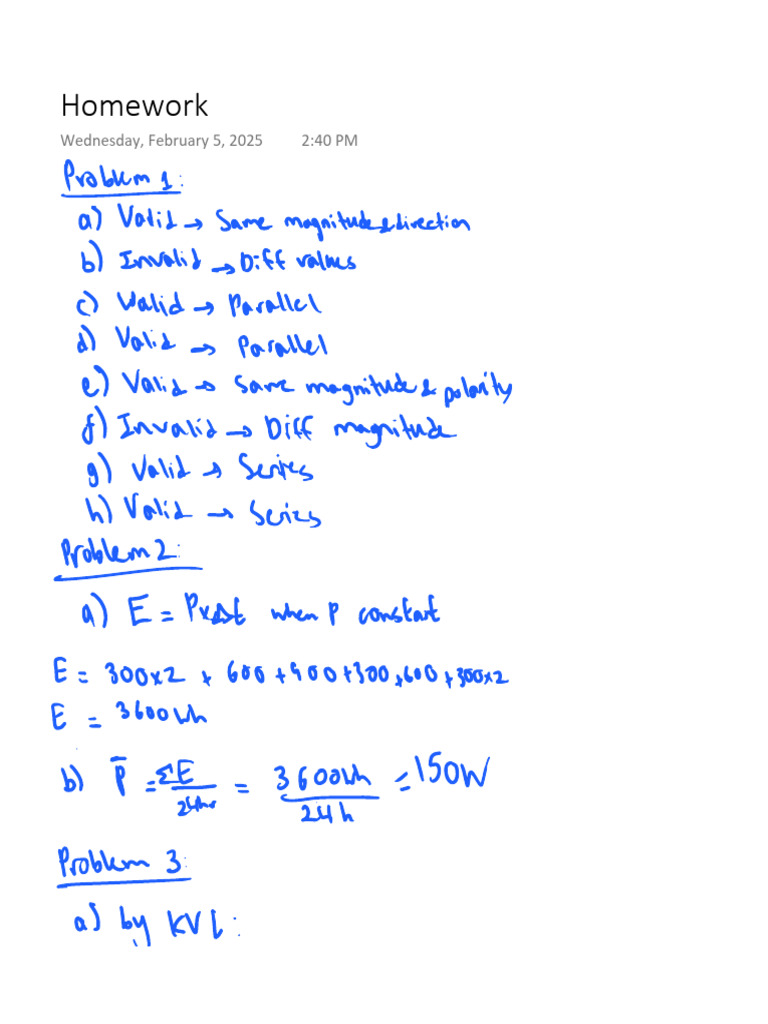 Homework
Wednesday, February 5, 2025 2:40 PM
Problem 1:
a) Valid → Same magnitude & direction
b) Invalid → Diff values
c) Valid → Parallel
d) Valid → Parallel
e) Valid → Same magnitude & polarity
f) Invalid → Diff magnitude
g) Valid → Series
h) Valid → Series
Problem 2:
a) E = P×Δt when P constant
E = 300×2 + 600 + 900 + 300 + 600 + 300×2
E = 3600 Wh
b) P̅ = ΣE/24hr = 3600Wh/24h = 150W
Problem 3:
a) by KVL: